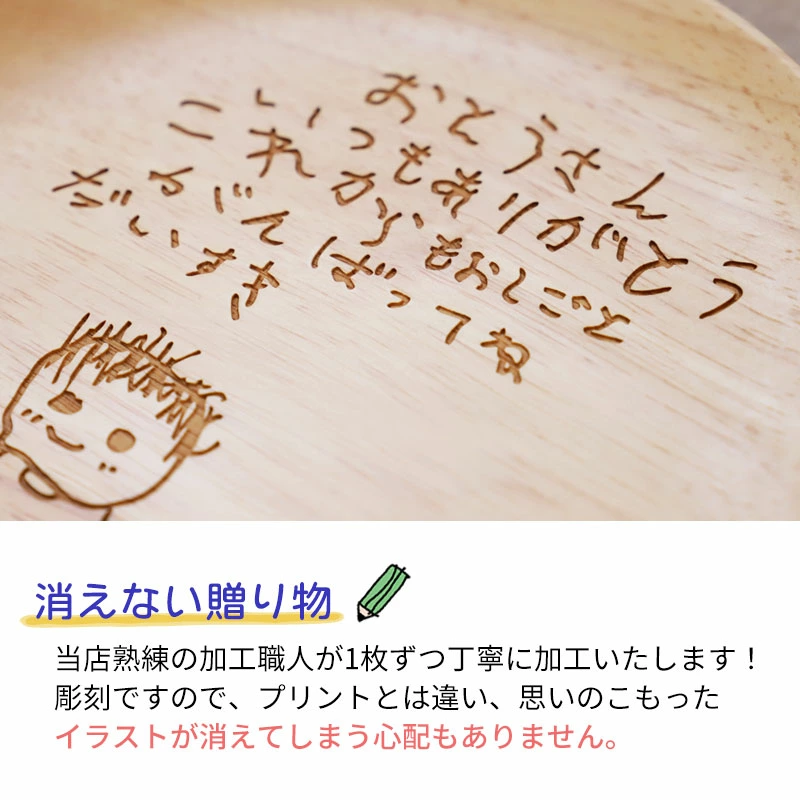 おとうさん
いつもありがとう
これからもおしごと
がんばってね
だいすき
消えない贈り物
当店熟練の加工職人が1枚ずつ丁寧に加工いたします！
彫刻ですので、プリントとは違い、思いのこもった
イラストが消えてしまう心配もありません。